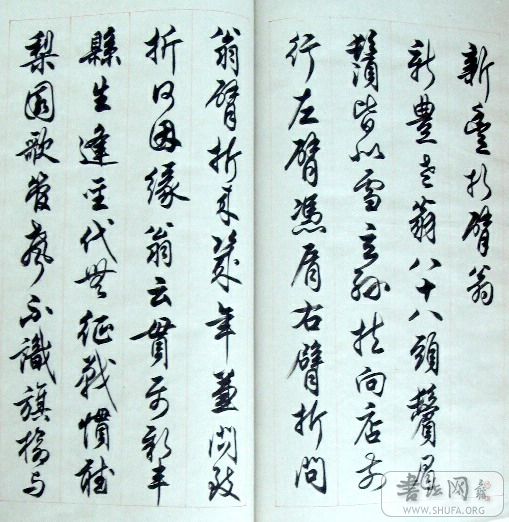 新豐折臂翁
新豐老翁八十八頭鬢眉
鬚皆似雪玄孫扶向店前
行左臂憑肩右臂折問
翁臂折來幾年兼問致
折何因緣翁云貫屬新丰
縣生逢聖代無征戰慣聽
梨園歌管聲不識旗槍与
书法网
WWW.SHUFA.ORG